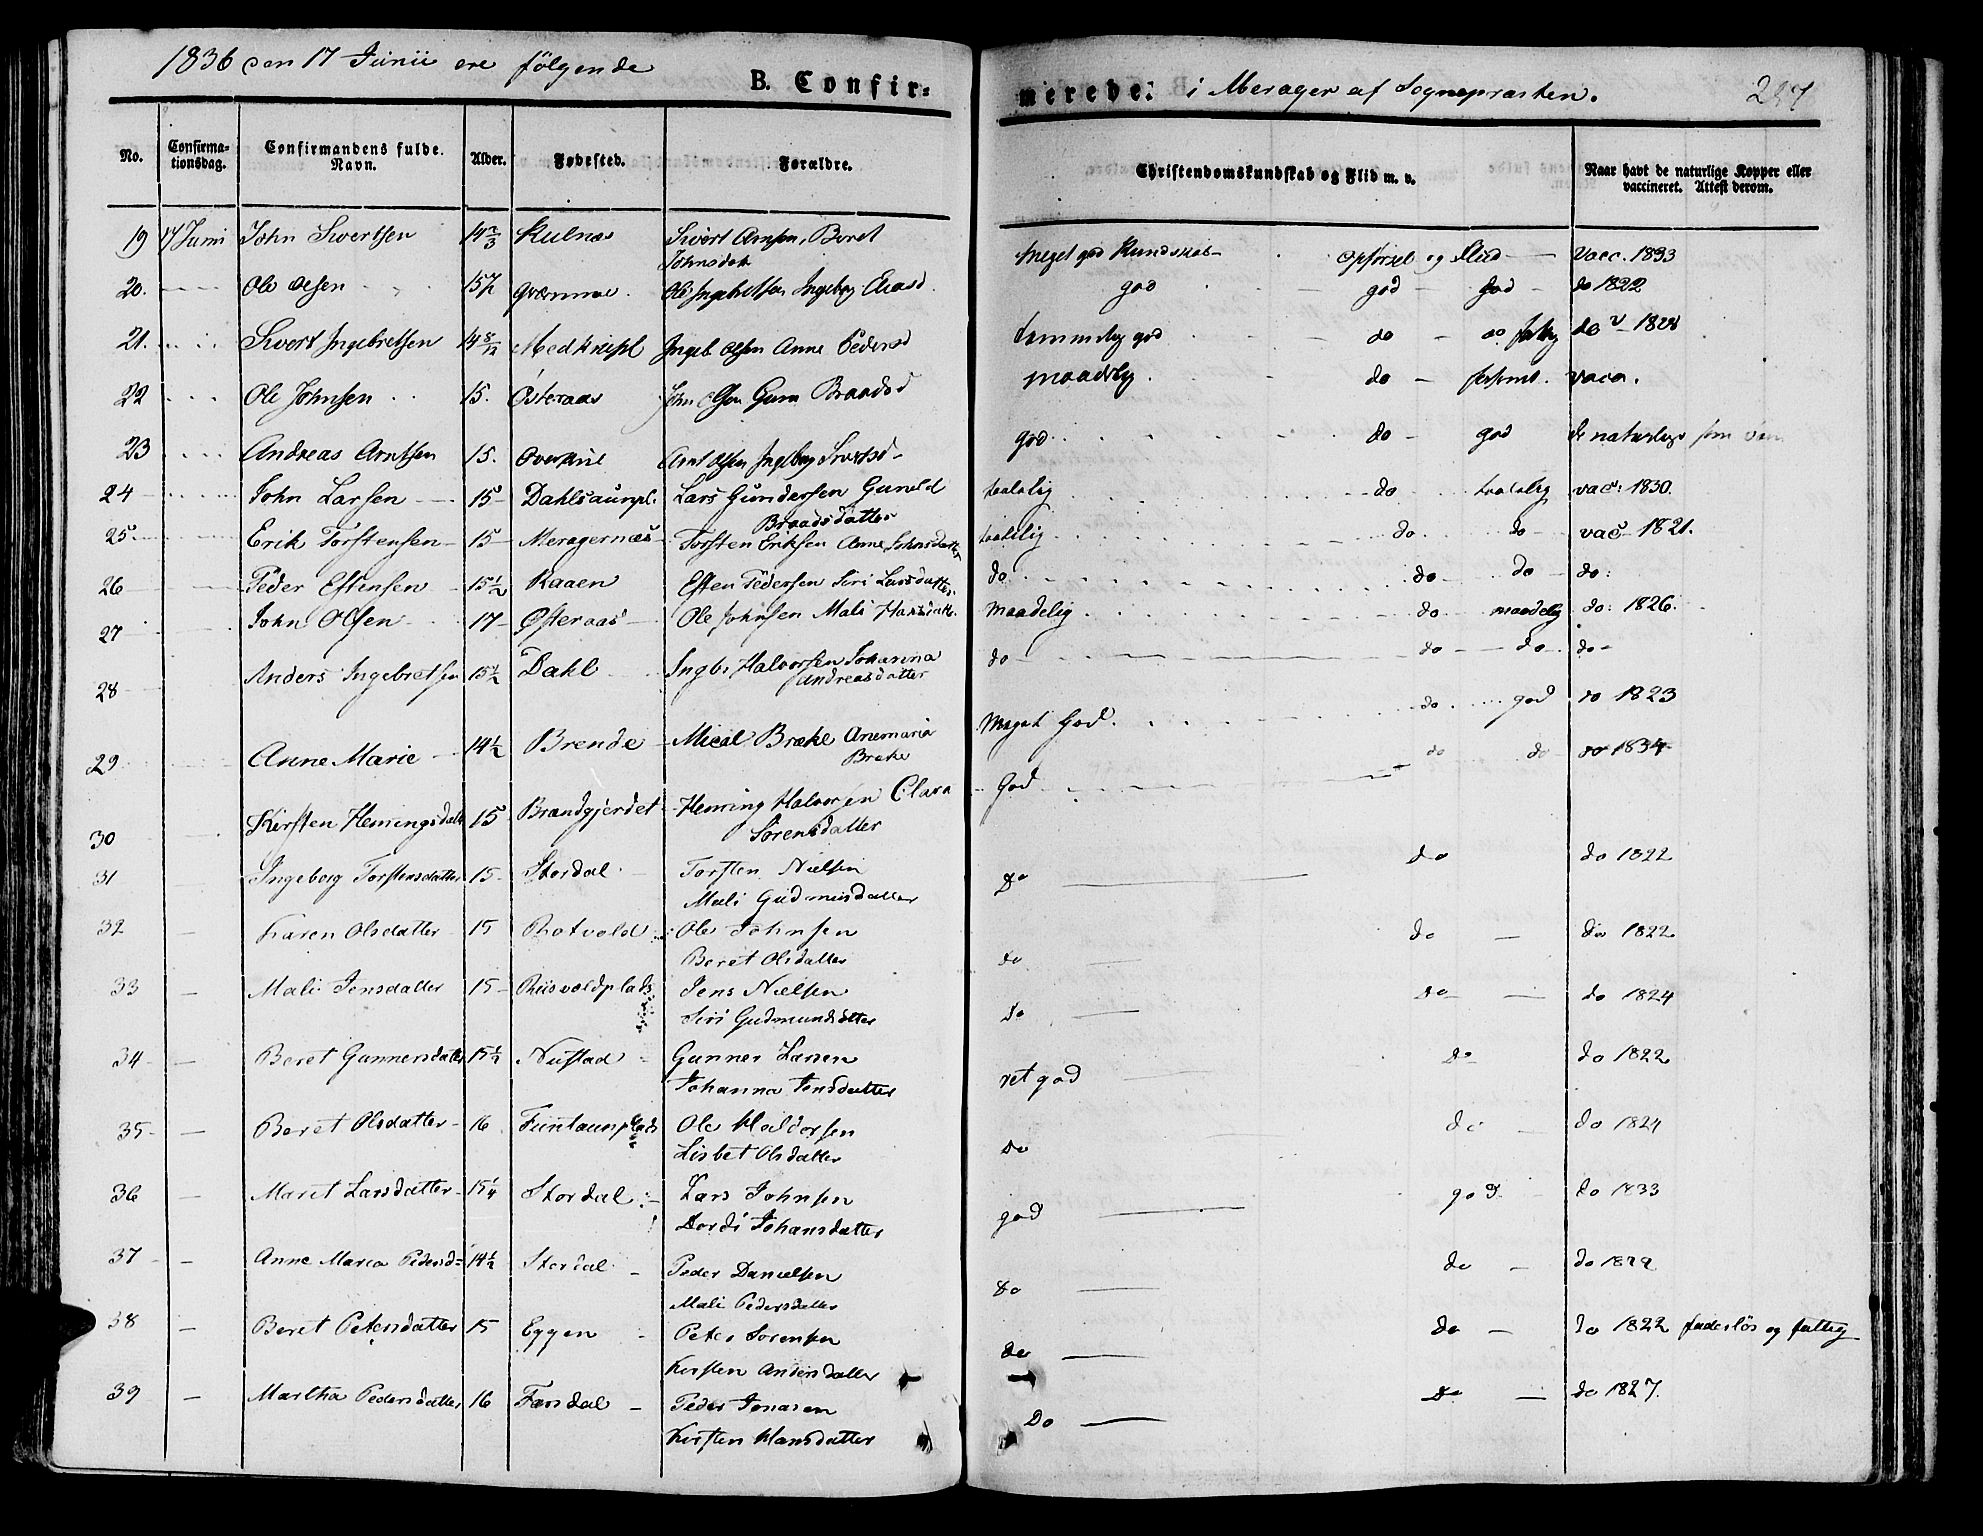 1836 den 17 Junii ere følgende B. Confir= merede. i Merager af Sognepræsten. 247
No. Confirma= tionsdag. Confirmandens fulde Navn. Alder. Fødested. Forældre. Christendomskundskab og Flid m. v. Naar havt de naturlige Kopper eller vaccineret. Attest derom.
19 17 Juni John Sivertsen 14 2/3 Kulnæs Sivert Arnsen, Beret Johnsdat meget god Kundskab opførsel og Flid Vacc. 1833
20. Ole Olsen 15 Ole Ingebretsen Ingeborg god god god do 1822
21. Sivert Ingebretsen 14 8/12 Ingeb Olsen Anne Pedersd temmelig god do do do 1828
22 Ole Johnsen 15. Østeraas John Olsen Guru Braadsd maadelig do vacc.
23 Andreas Arntsen 15. Arnt Olsen Ingeborg Sivertsd god do god de naturlige
24 John Larsen 15 Dahlsaunpl. Lars Gundersen Gunild Braadsdatter taalelig do taalelig vac: 1830.
25. Erik Torstensen 15 Meragernæs Torsten Eriksen Anne Johnsdatter taalelig do do vac 1821.
26 Peder Estensen 15 1/2 Kaaen Esten Pedersen Siri Larsdatter do do do do:
27 John Olsen 17 Østeraas Ole Johnsen Mali Hansdatt. maadelig do maadelig do: 1826.
28 Anders Ingebretsen 15 1/2 Dahl Ingbr Halvorsen Johanna Andreasdatter do do do do
29 Anne Marie 14 1/2 Brende Micál Brække Anemaria Brække Meget God. do god do 1823
30 Kirsten Hemingsdatt 15 Brandgjerdet Heming Halvorsen Clara Sørensdatter God do do do 1834
31 Ingeborg Torstensdatter 15 Stordal Torsten Nielsen Mali Gudmunsdatter do do do 1822
32 Karen Olsdatter 15 Rotvold Ole Johnsen Beret Olsdatter do do do 1822
33 Mali Jensdatter 15 Riisvoldplads Jens Nielsen Siri Gudmundsdatter do do do 1824
34 Beret Gunnersdatter 15 1/2 Nustad Gunner Larsen Johanna Jensdatter ret god do do 1822
35 Beret Olsdatter 16 Funtaunplads Ole Haldorsen Lisbet Olsdatter do do do 1824
36 Maret Larsdatter 15 1/4 Stordal Lars Johnsen Dordi Johansdatter god god do 1833
37 Anne Maria Pedersd= 14 1/2 Stordal Peder Danielsen Mali Pedersdatter do do do
38 Beret Petersdatter 15 Eggen Peter Sørensen Kirsten Andersdatter do do do 1822 faderløs og fattig
39 Martha Pedersdatter 16 Færsdal Peder Jonasen Kirsten Hansdatter Do do do 1827.